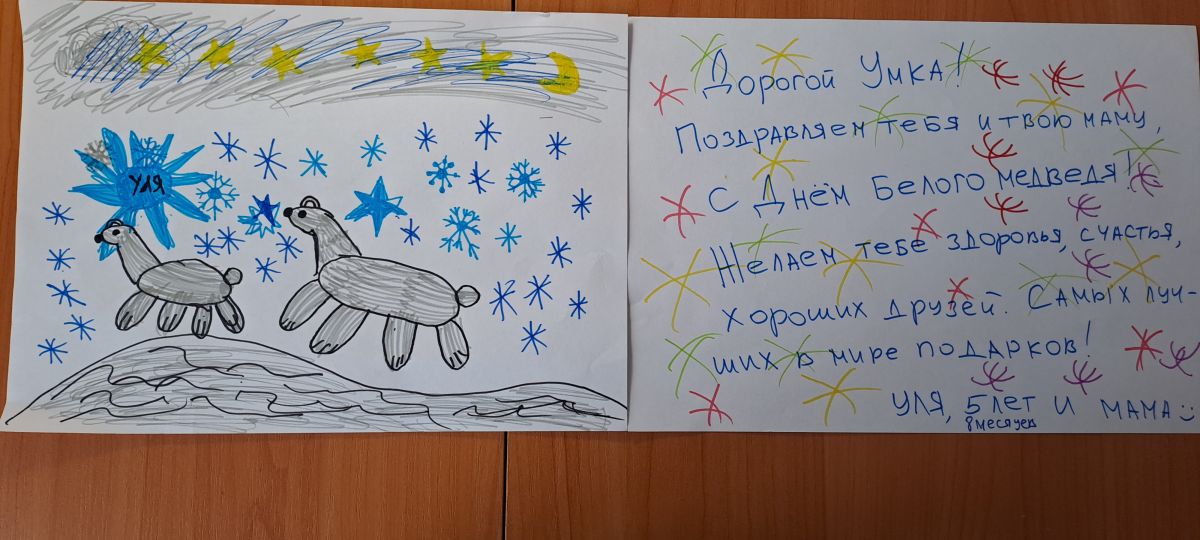 УЛЯ
Дорогой Умка!
Поздравляем тебя и твою маму,
с Днём Белого медведя!
Желаем тебе здоровья, счастья,
хороших друзей. Самых луч-
ших в мире подарков!
Уля, 5 лет и мама
8 месяцев